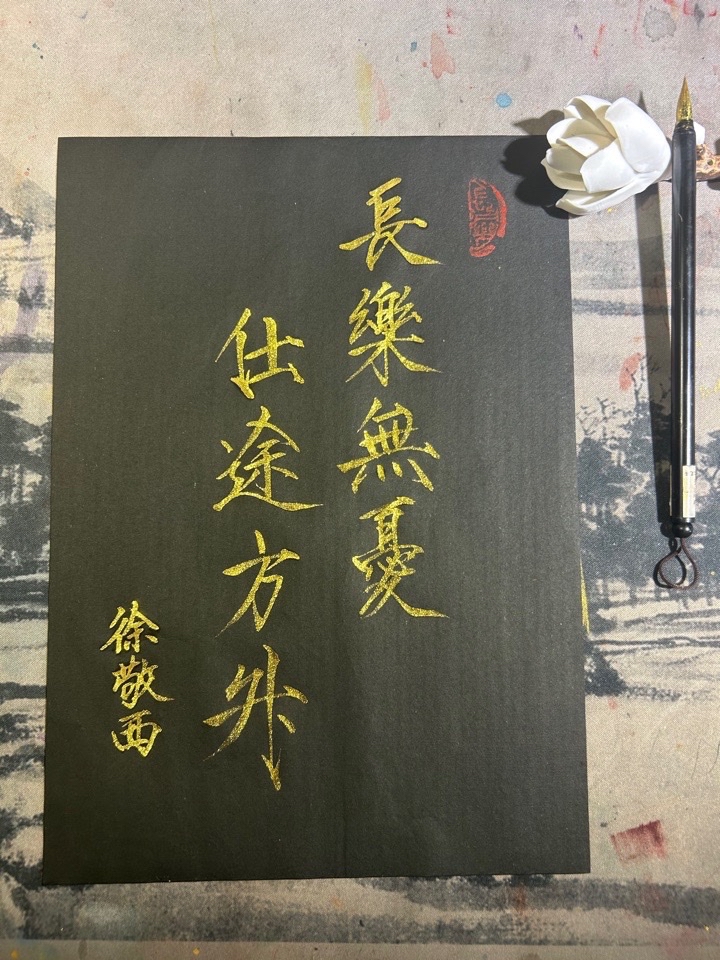 長樂無憂
仕途方升
徐敬西